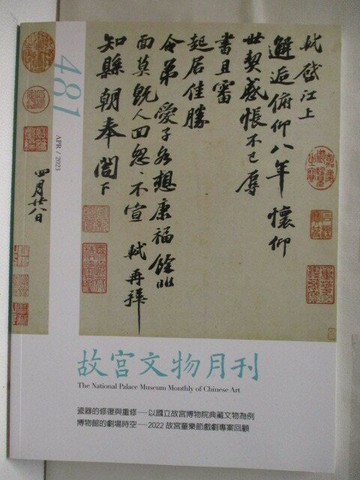 481
APR / 2023
軾啟江上
邂逅俯仰八年懷仰
世契感悵不已辱
書且審
起居佳勝
令弟愛子各想康福餘非
面莫既人回怱〻不宣 軾再拜
知縣朝奉閣下
四月廿八日
故宮文物月刊
The National Palace Museum Monthly of Chinese Art
瓷器的修護與重修——以國立故宮博物院典藏文物為例
博物館的劇場時空——2022故宮童樂節戲劇專案回顧